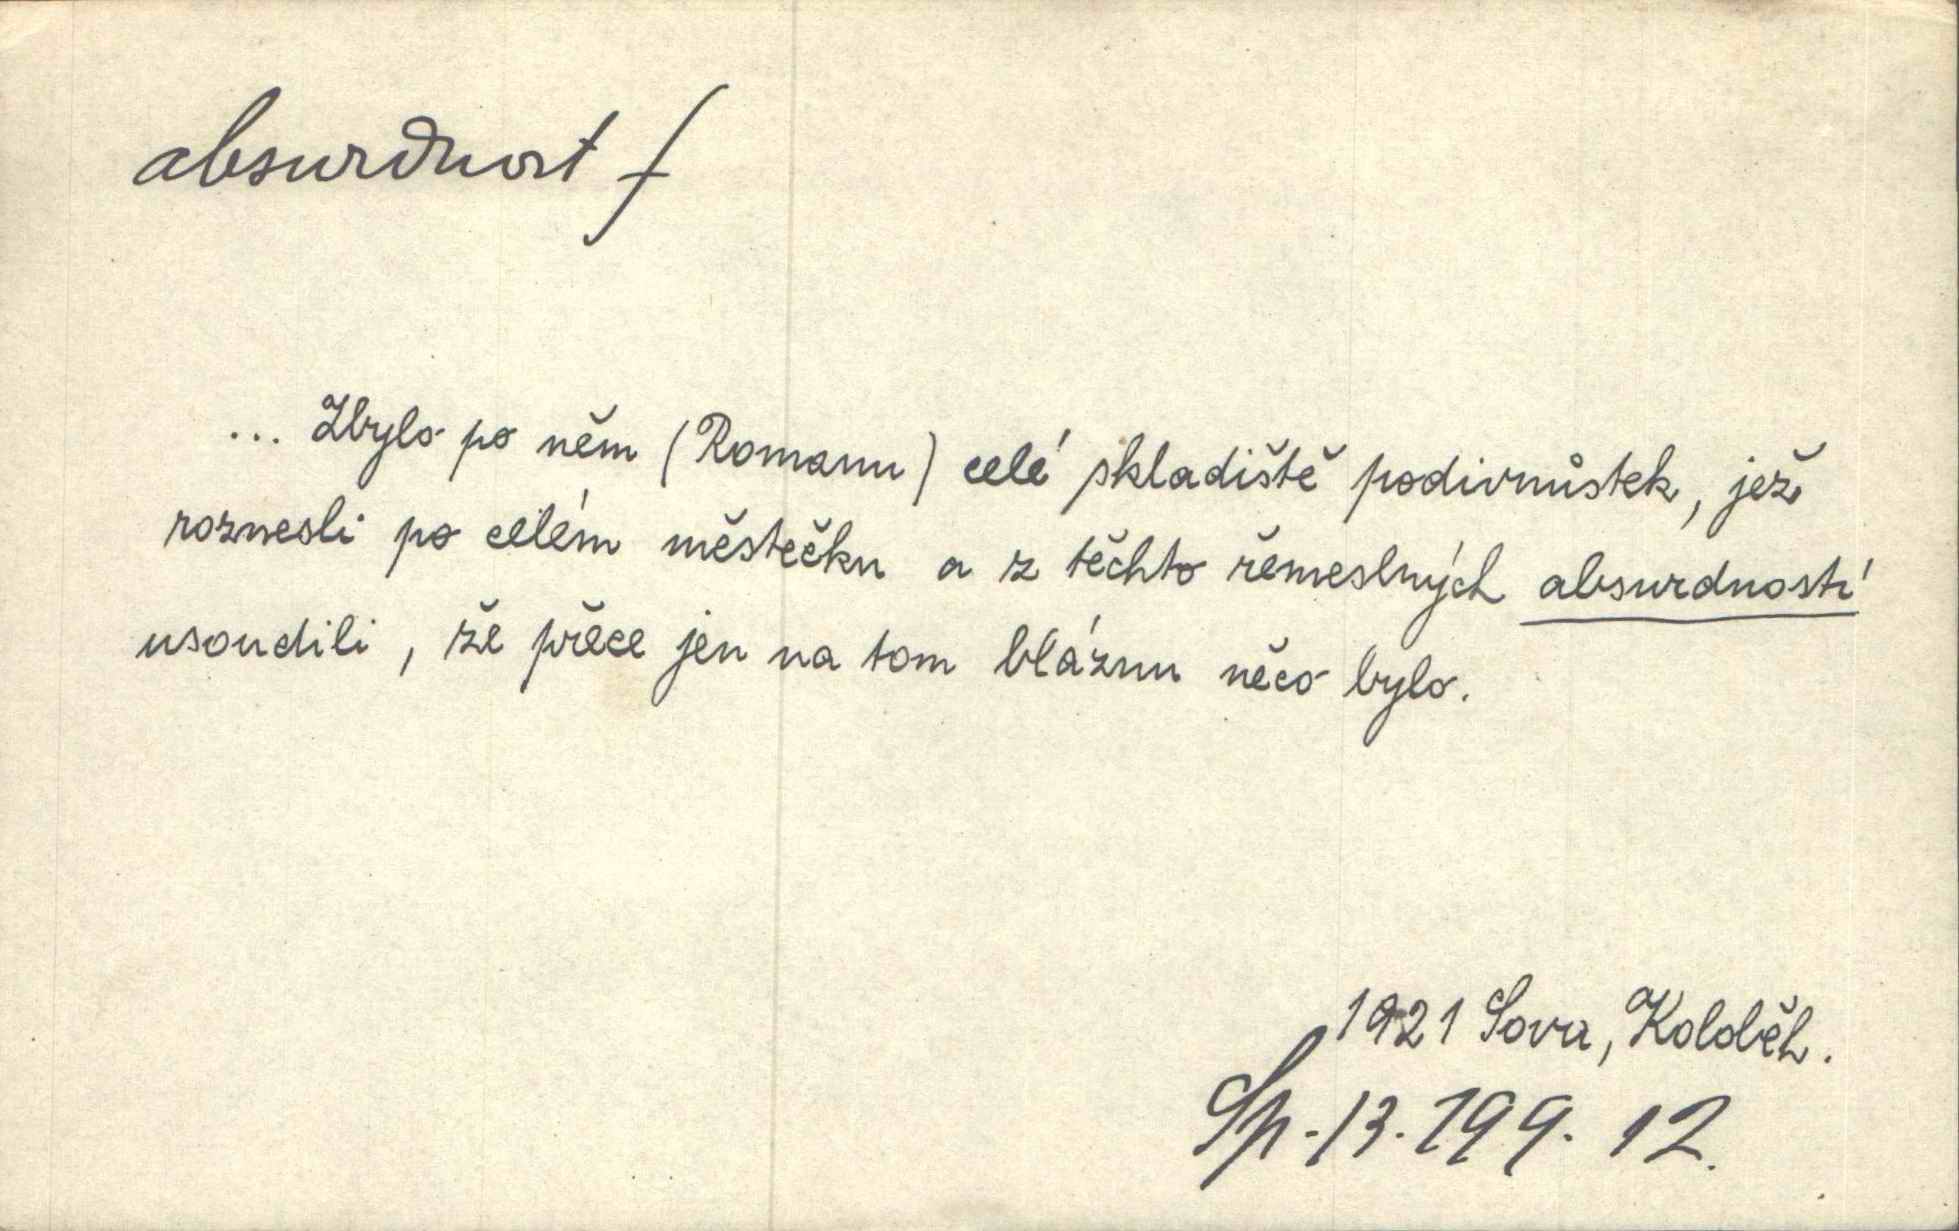 absurdnost f
... Zbylo po něm (Romanu) celé skladiště podivnůstek, jež
roznesli po celém městečku a z těchto řemeslných absurdností
usoudili, že přece jen na tom bláznu něco bylo.
1921 Sova, Koloběh.
Sp. 13. 199. 12.